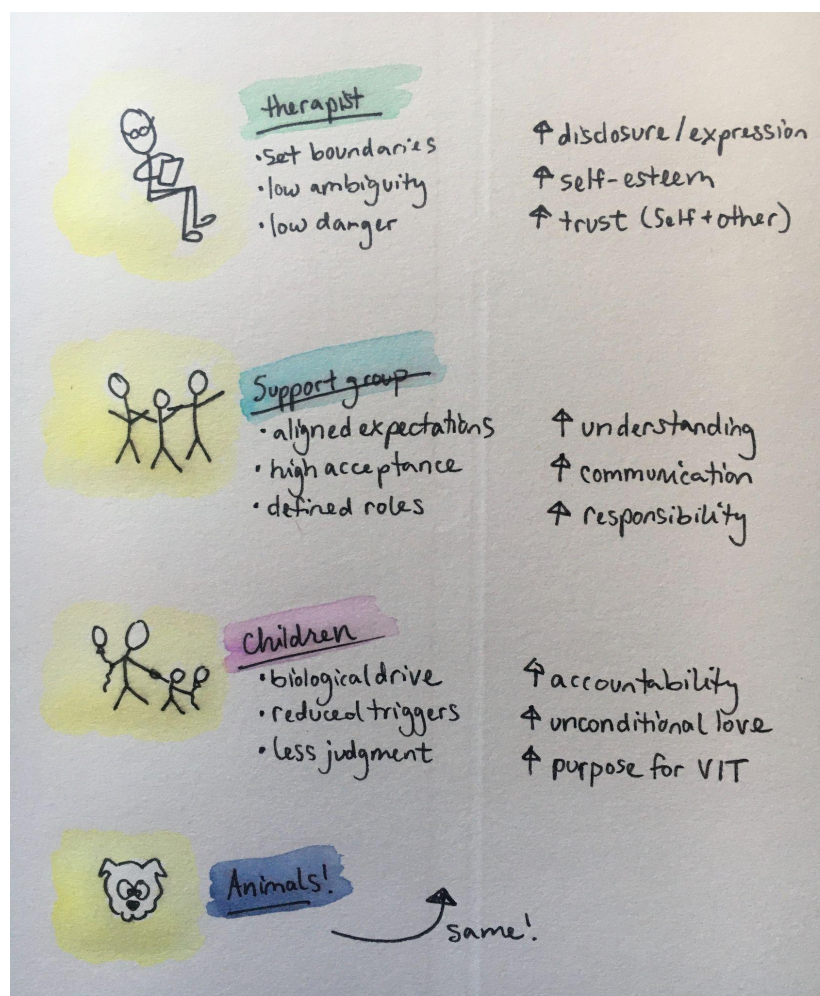 therapist
• set boundaries
• low ambiguity
• low danger
↑ disclosure/expression
↑ self-esteem
↑ trust (self + other)
Support group
• aligned expectations
• high acceptance
• defined roles
↑ understanding
↑ communication
↑ responsibility
Children
• biological drive
• reduced triggers
• less judgment
↑ accountability
↑ unconditional love
↑ purpose for VIT
Animals!
same!